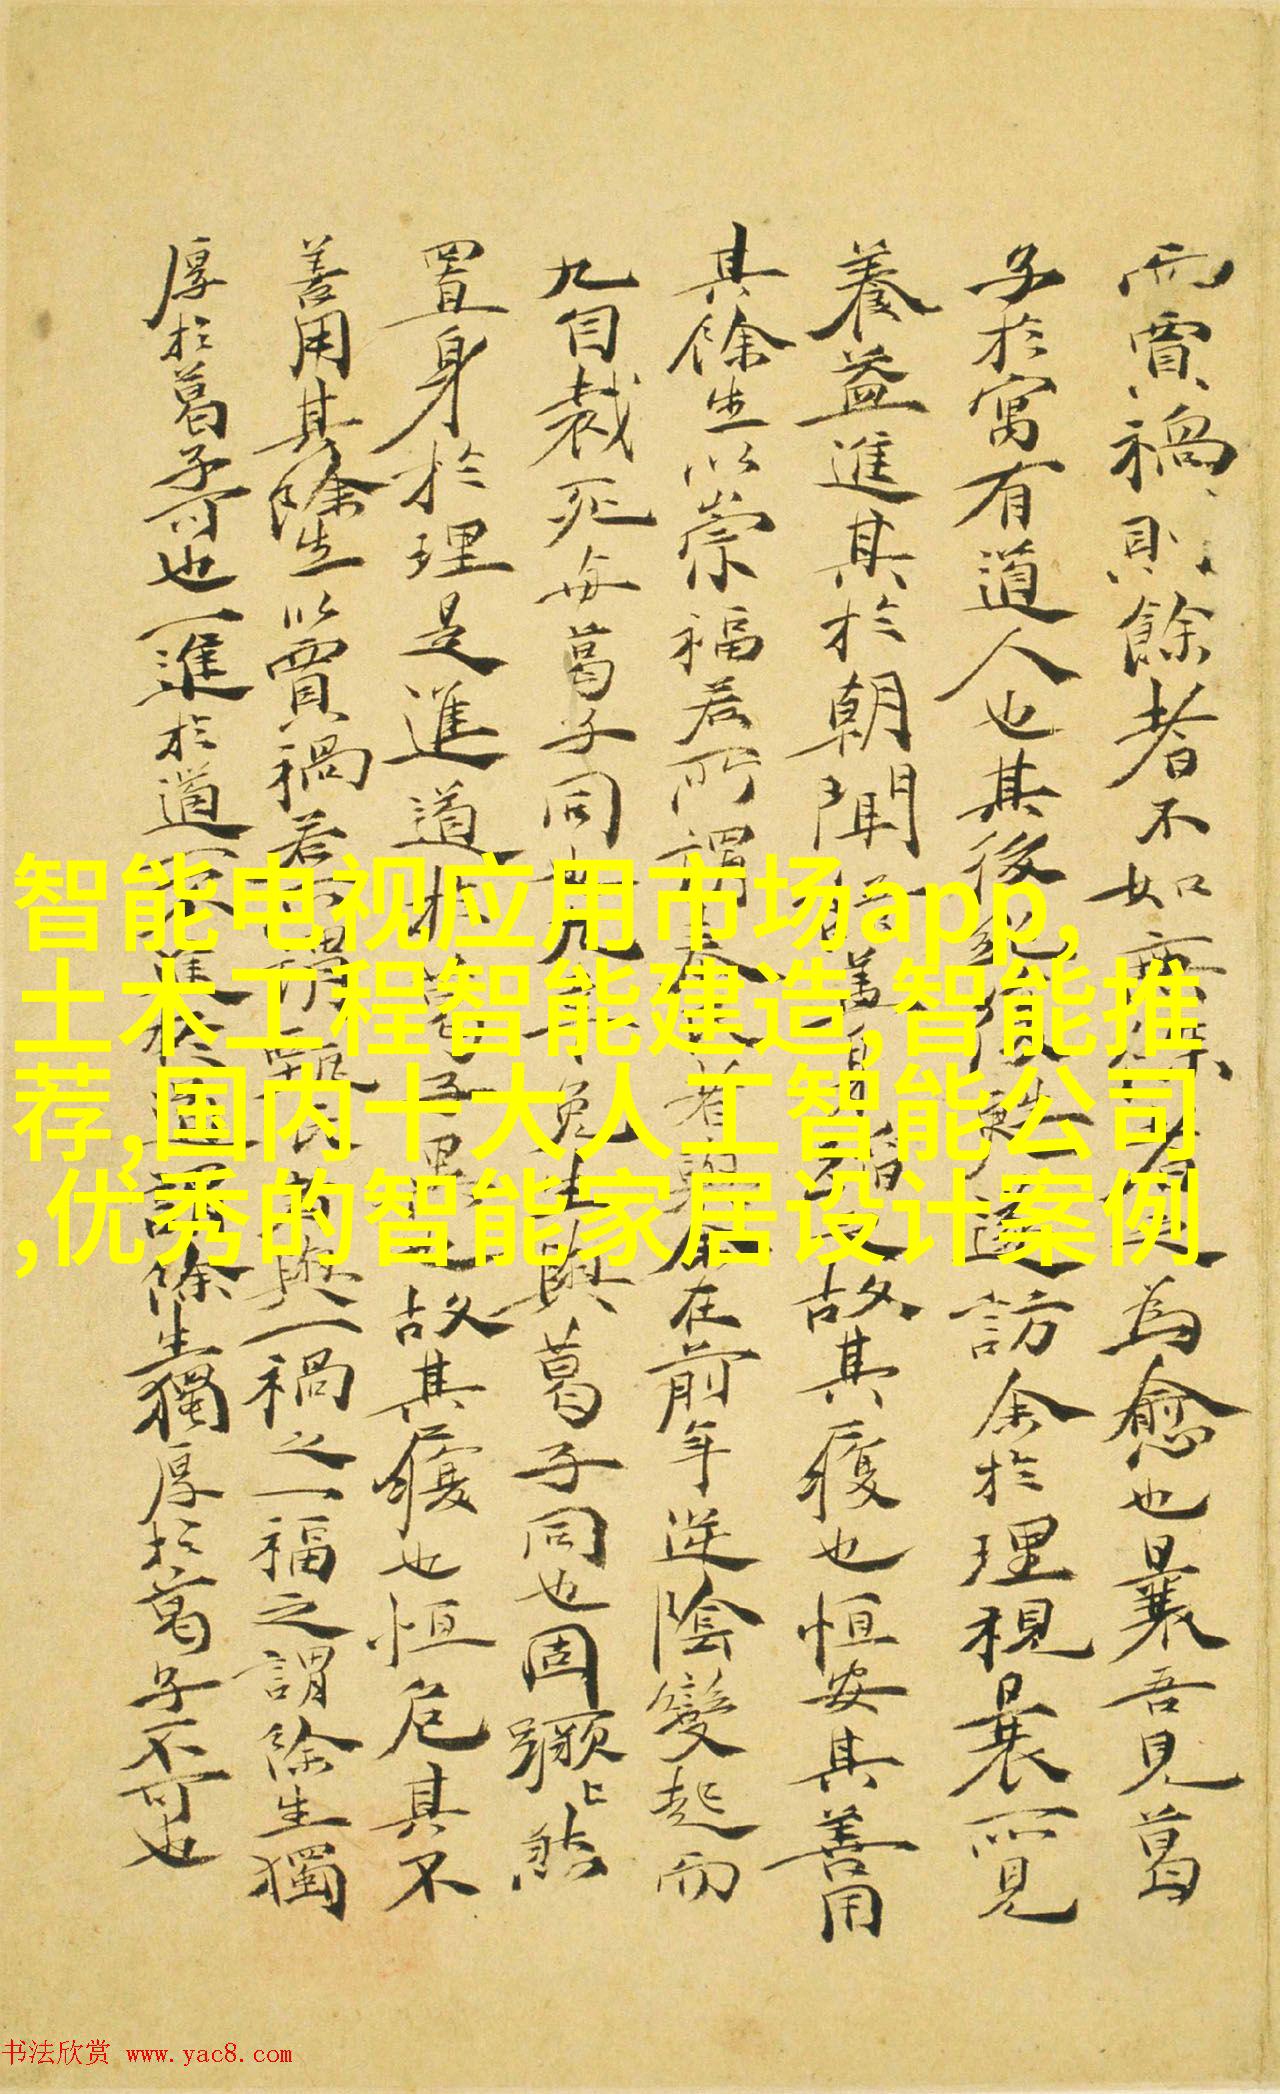 而賈禍則餘者不如無餘者之為愈也曩吾見葛
子於寓有道人也其後訪余於理視曩所見
養益進其於朝聞故其履也恒安其善用
其餘生以崇福若所謂者在前年逆陰變起而
九自裁死毋葛子同九年免與葛子同也固蹶
置身於理是進道於葛子故其履也恒危其不
善用其除生以賈禍若所謂與一禍之一福之謂除生獨
厚於葛子可也一進於道一不進於道謂除生獨厚於葛子不可也
智能电视应用市场app,
土木工程智能建造,智能推
荐,国内十大人工智能公司
,优秀的智能家居设计案例
书法欣赏 www.yac8.com